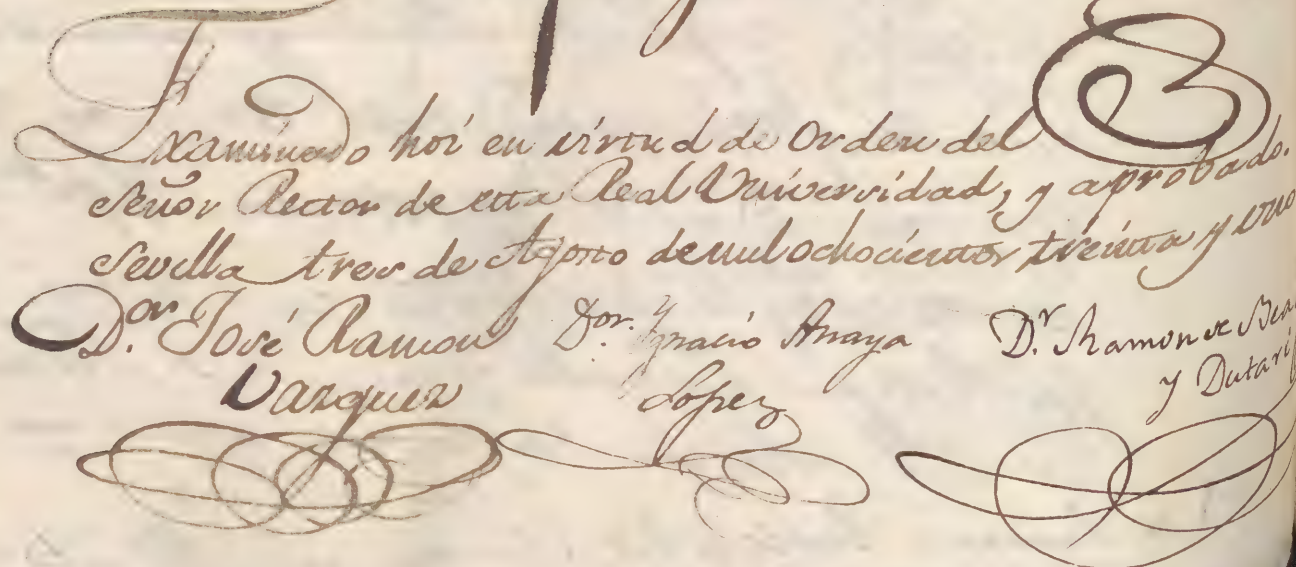 Examinado hoi en virtud de Orden del
Señor Rector de esta Real Universidad, y aprobado.
Sevilla tres de Agosto de mil ochocientos treinta y uno
D.or José Ramon
Vazquez
Dor. Ygnacio Anaya
Lopez
D.r Ramon de
y Dutari